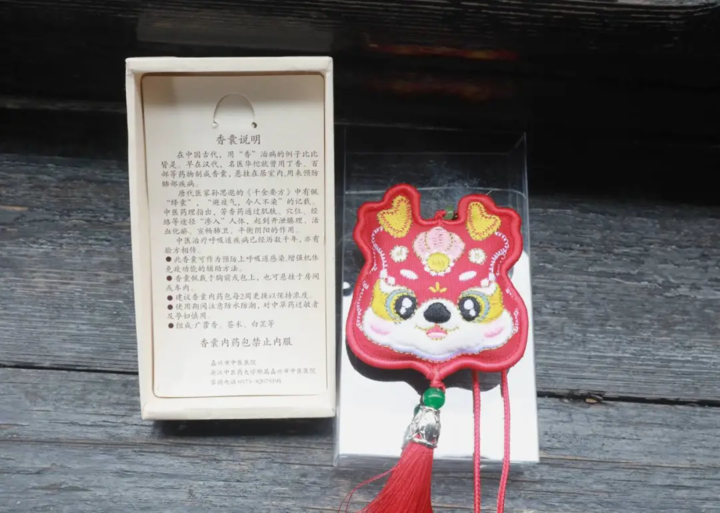 香囊说明
在中国古代，用“香”治病的例子比比
皆是。早在汉代，名医华佗就曾用丁香、百
部等药物制成香囊，悬挂在居室内，用来预防
肺部疾病。
唐代医家孙思邈的《千金要方》中有佩
“绛囊”，“避疫气，令人不染”的记载。
中医药理指出，芳香药通过肌肤、穴位、经
络等途径“渗入”人体，起到开泄腠理、活
血化瘀、宣畅肺卫、平衡阴阳的作用。
中医治疗呼吸道疾病已经历数千年，亦有
验方相传。
●此香囊可作为预防上呼吸道感染，增强机体
免疫功能的辅助方法。
●香囊佩戴于胸前或包上，也可悬挂于房间
或车内。
●建议香囊内药包每2周更换以保持浓度。
●使用期间注意防水防潮，对中草药过敏者
及孕妇慎用。
●组成:广藿香、苍术、白芷等
香囊内药包禁止内服
嘉兴市中医医院
浙江中医药大学附属嘉兴市中医医院